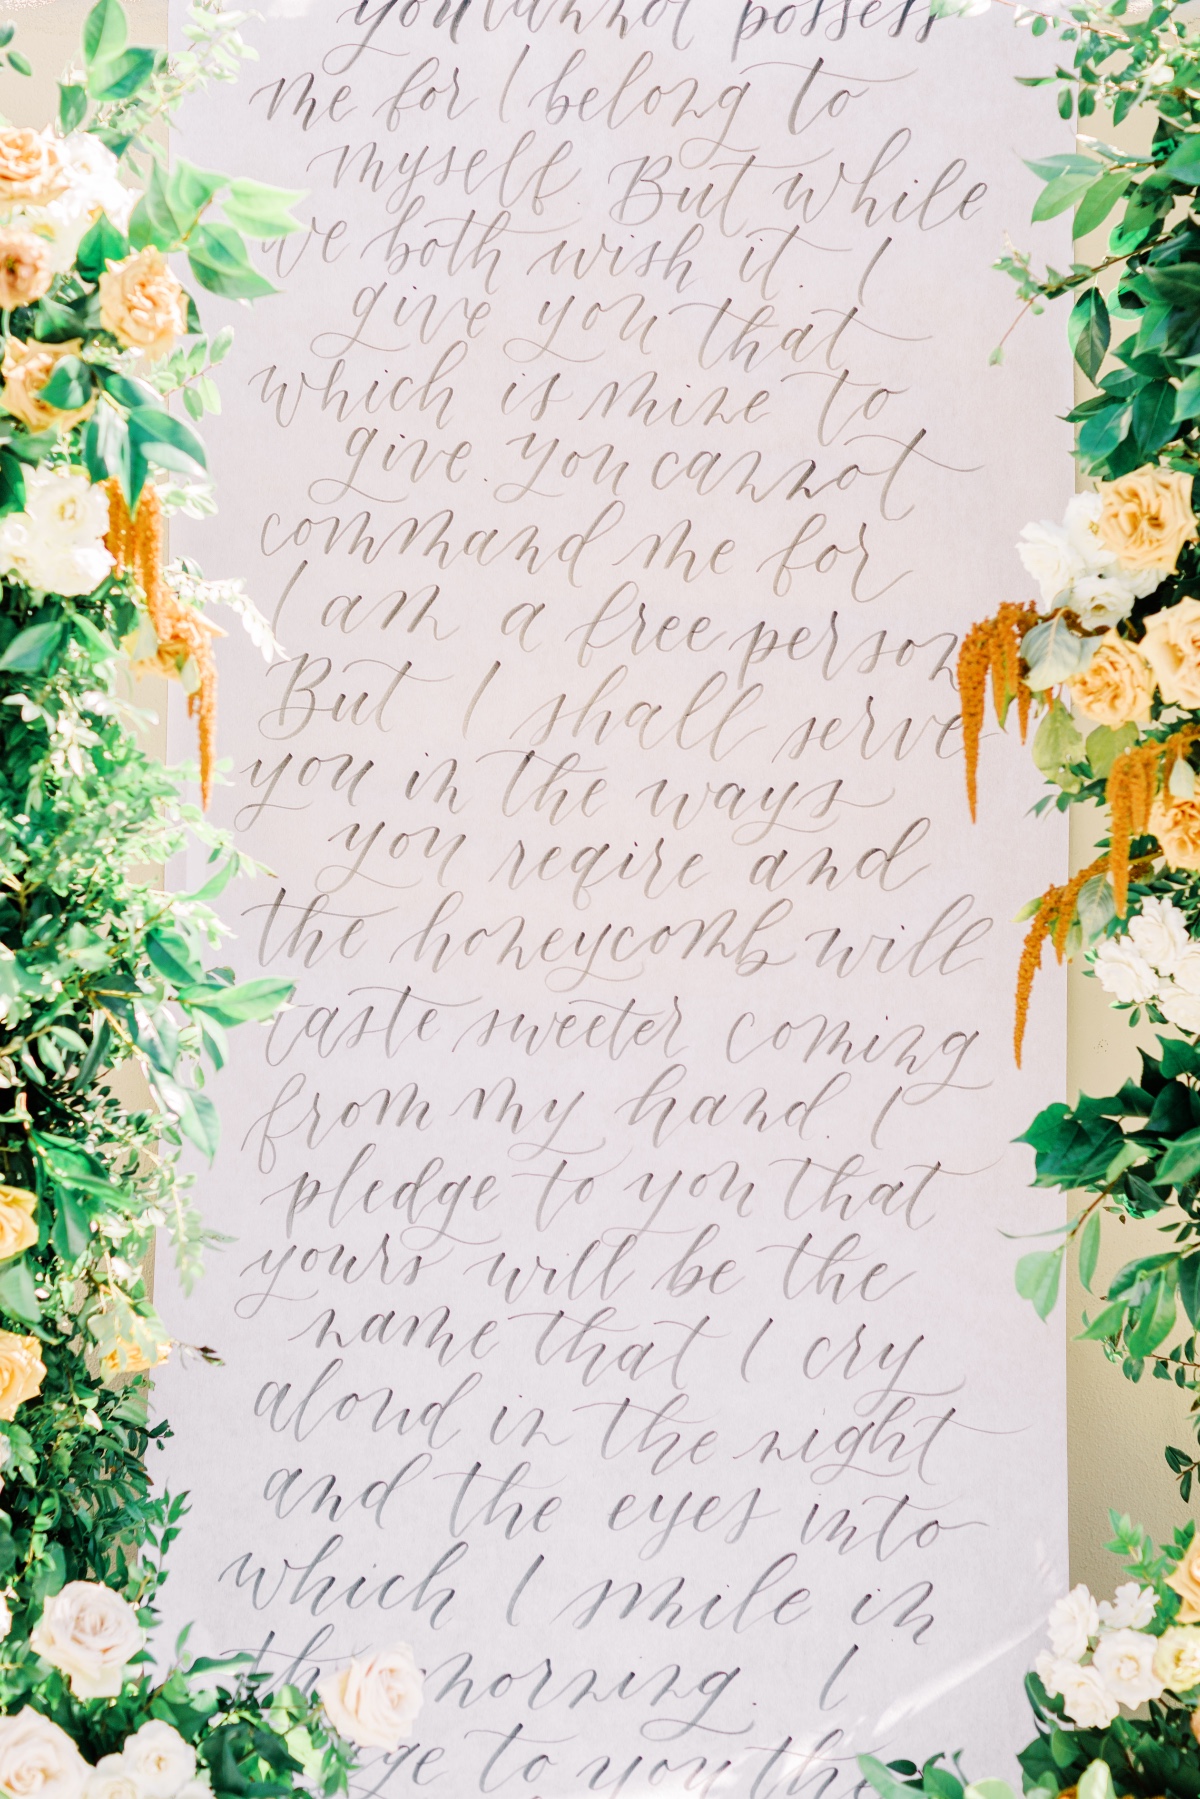 you cannot possess
me for I belong to
myself. But while
we both wish it. I
give you that
which is mine to
give. You cannot
command me for
I am a free person
But I shall serve
you in the ways
you reqire and
the honeycomb will
taste sweeter coming
from my hand. I
pledge to you that
yours will be the
name that I cry
aloud in the night
and the eyes into
which I smile in
the morning. I
to you the